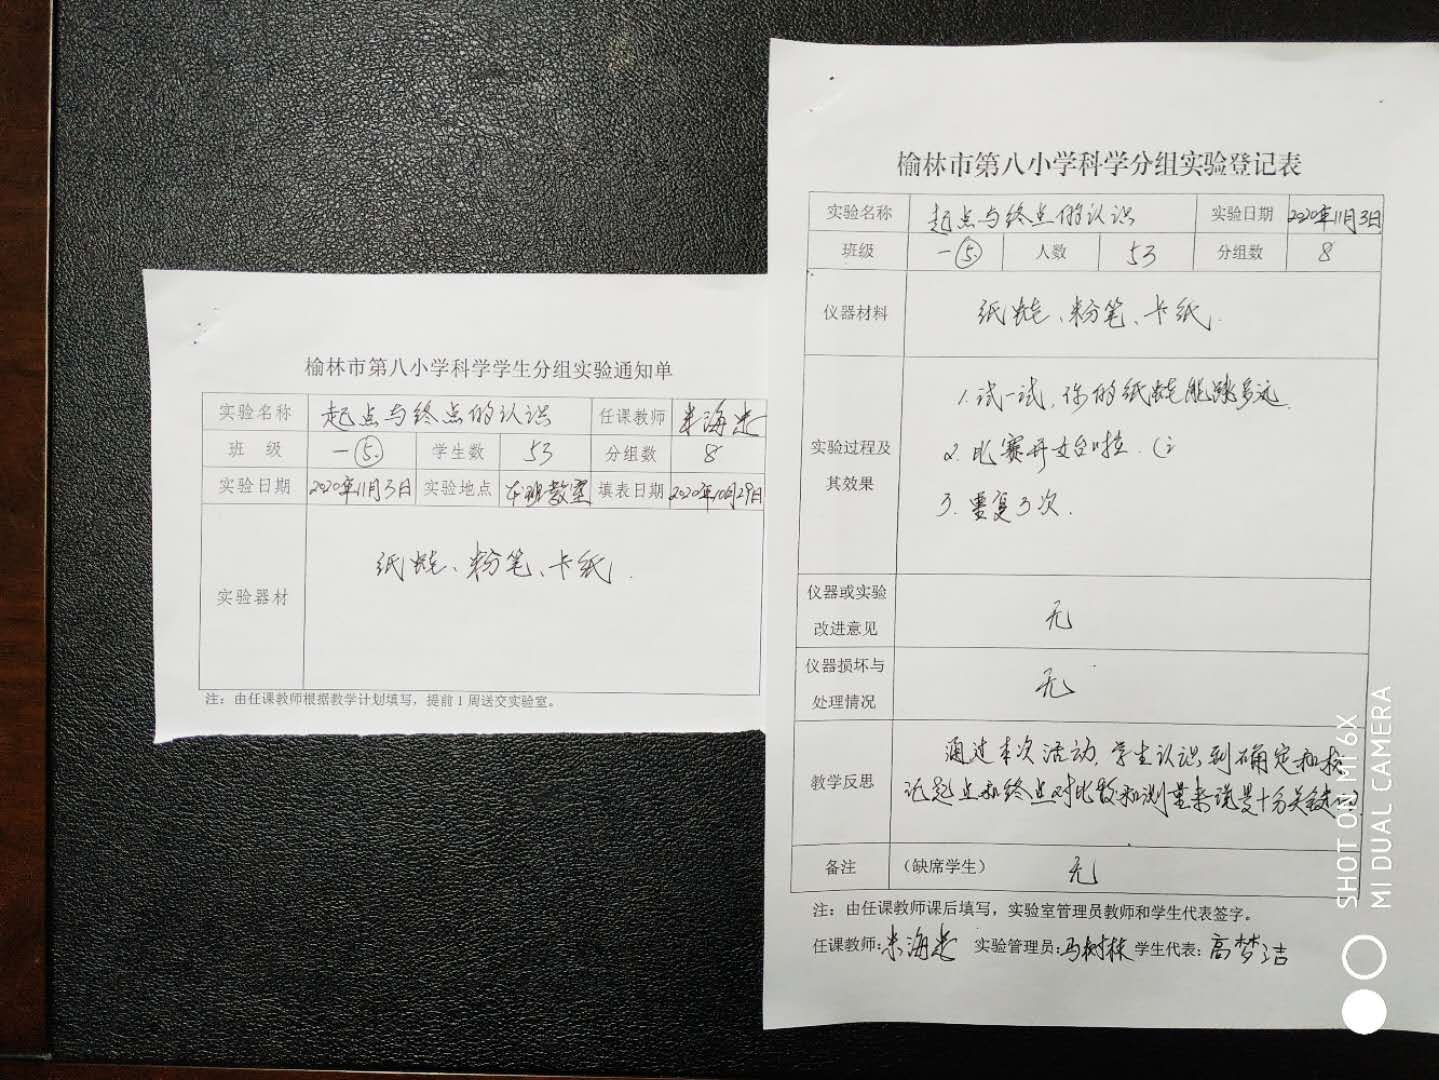 榆林市第八小学科学学生分组实验通知单
实验名称 起点与终点的认识 任课教师 米海忠
班 级 一⑤ 学生数 53 分组数 8
实验日期 2020年11月3日 实验地点 本班教室 填表日期 2020年10月29日
实验器材 纸蛙、粉笔、卡纸.
注：由任课教师根据教学计划填写，提前1周送交实验室。
榆林市第八小学科学分组实验登记表
实验名称 起点与终点的认识 实验日期 2020年11月3日
班级 一⑤ 人数 53 分组数 8
仪器材料 纸蛙、粉笔、卡纸.
实验过程及
其效果
1.试一试,你的纸蛙能跳多远.
2.比赛开始啦.
3.重复3次.
仪器或实验
改进意见
无
仪器损坏与
处理情况
无
教学反思
通过本次活动,学生认识到确定和标
记起点和终点对比较和测量来说是十分关键的.
备注 （缺席学生） 无
注：由任课教师课后填写，实验室管理员教师和学生代表签字。
任课教师:米海忠 实验管理员:马树林 学生代表:高梦洁
SHOT ON MI 6X
MI DUAL CAMERA